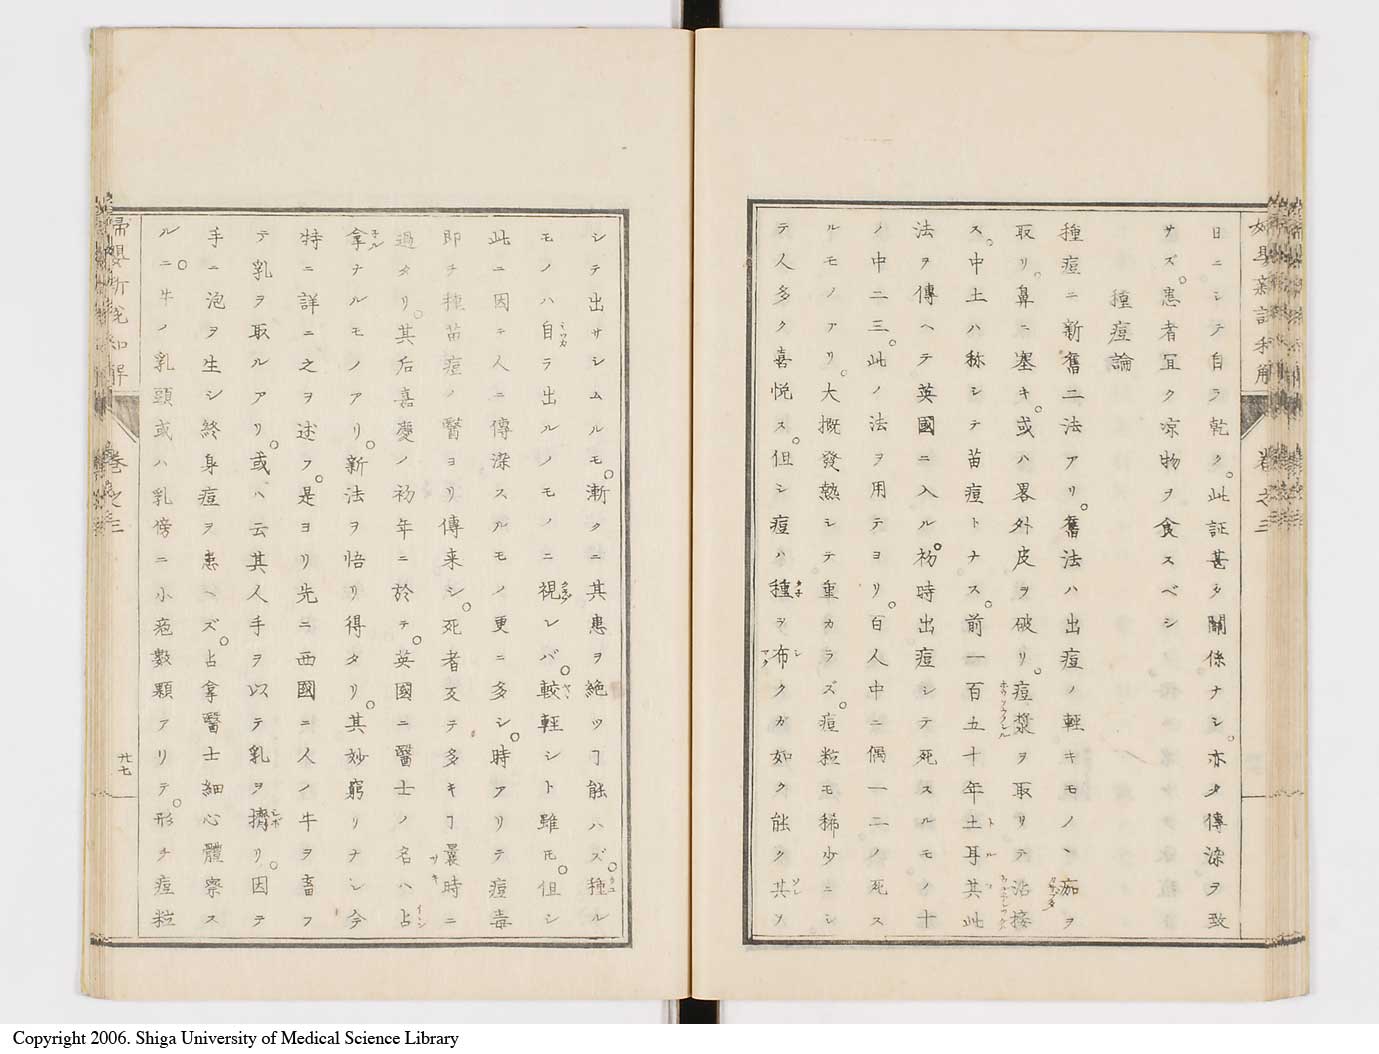 日ニシテ自ラ乾ク。此証甚タ關係ナシ。亦タ傳染ヲ致
サズ。患者宜ク凉物ヲ食スベシ
種痘論
種痘ニ新舊二法アリ。舊法ハ出痘ノ輕キモノヽ痂ヲ
取リ。鼻ニ塞キ。或ハ畧外皮ヲ破リ。痘漿ヲ取リテ沾接
ス。中土ハ称シテ苗痘トナス。前一百五十年土耳其此
法ヲ傳ヘテ英國ニ入ル。初時出痘シテ死スルモノ十
ノ中二三。此ノ法ヲ用テヨリ。百人中ニ偶一二ノ死ス
ルモノアリ。大概發熱シテ重カラズ。痘粒モ稀少ニシ
テ人多ク喜悦ス。但シ痘ハ種ヲ布クガ如ク能ク其ソ
シテ出サシムルモ。漸クニ其患ヲ絶ツヿ能ハズ。種ル
モノハ自ラ出ルノモノニ視レバ。較輕シト雖𪜈。但シ
此ニ因テ人ニ傳染スルモノ更ニ多シ。時アリテ痘毒
即チ種苗痘ノ醫ヨリ傳来シ。死者反テ多キヿ曩時ニ
過タリ。其后嘉慶ノ初年ニ於テ。英國ニ醫士ノ名ハ占
拿ナルモノアリ。新法ヲ悟リ得タリ。其妙窮リナシ今
特ニ詳ニ之ヲ述フ。是ヨリ先ニ西國ニ人ノ牛ヲ畜フ
テ乳ヲ取ルアリ。或ハ云其人手ヲ以テ乳ヲ擠リ。因テ
手ニ泡ヲ生シ終身痘ヲ患ヘズ。占拿醫士細心體察ス
ルニ。牛ノ乳頭或ハ乳傍ニ小疱數顆アリテ。形チ痘粒
婦嬰新説和解
巻之三
廿七